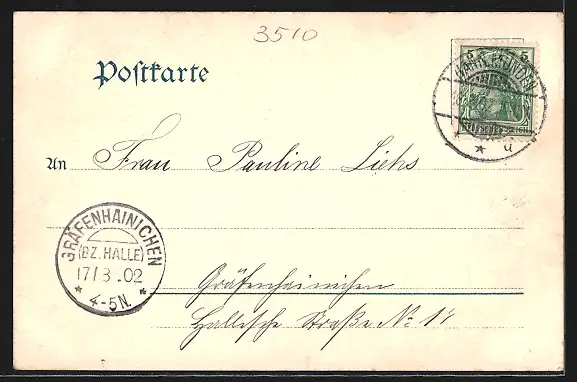 3510
Postkarte
5 5
An Frau Pauline Liehs
GRÄFENHAINICHEN
(BZ. HALLE)
17/3.02
* 4-5N. *
Gräfenhainichen
Hallische Straße No 14
* a